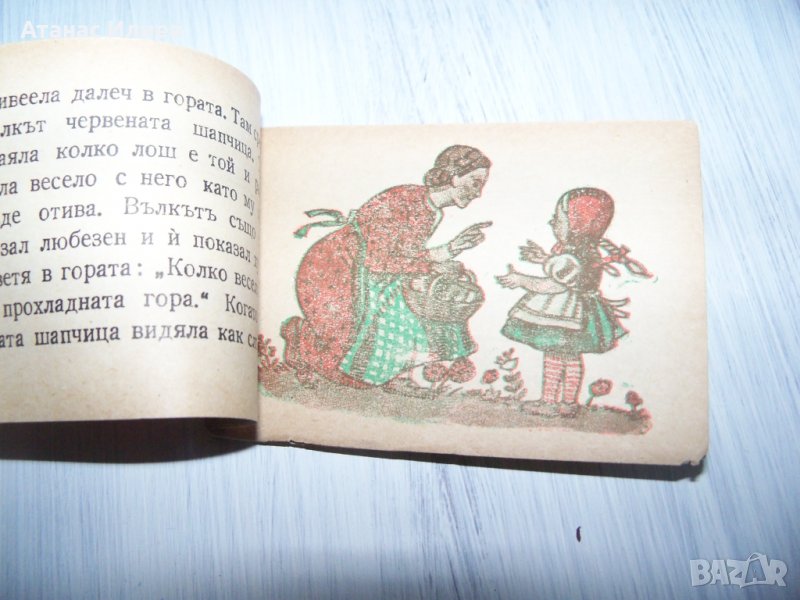 Атанас Илиев
ивеела далеч в гората. Там
лкът червената шапчица,
аяла колко лош е той и
ла весело с него като му
де отива. Вълкътъ също
зал любезен и ѝ показал
ветя в гората: „Колко весел
прохладната гора.“ Когат
ата шапчица видяла как сл
BAZAR